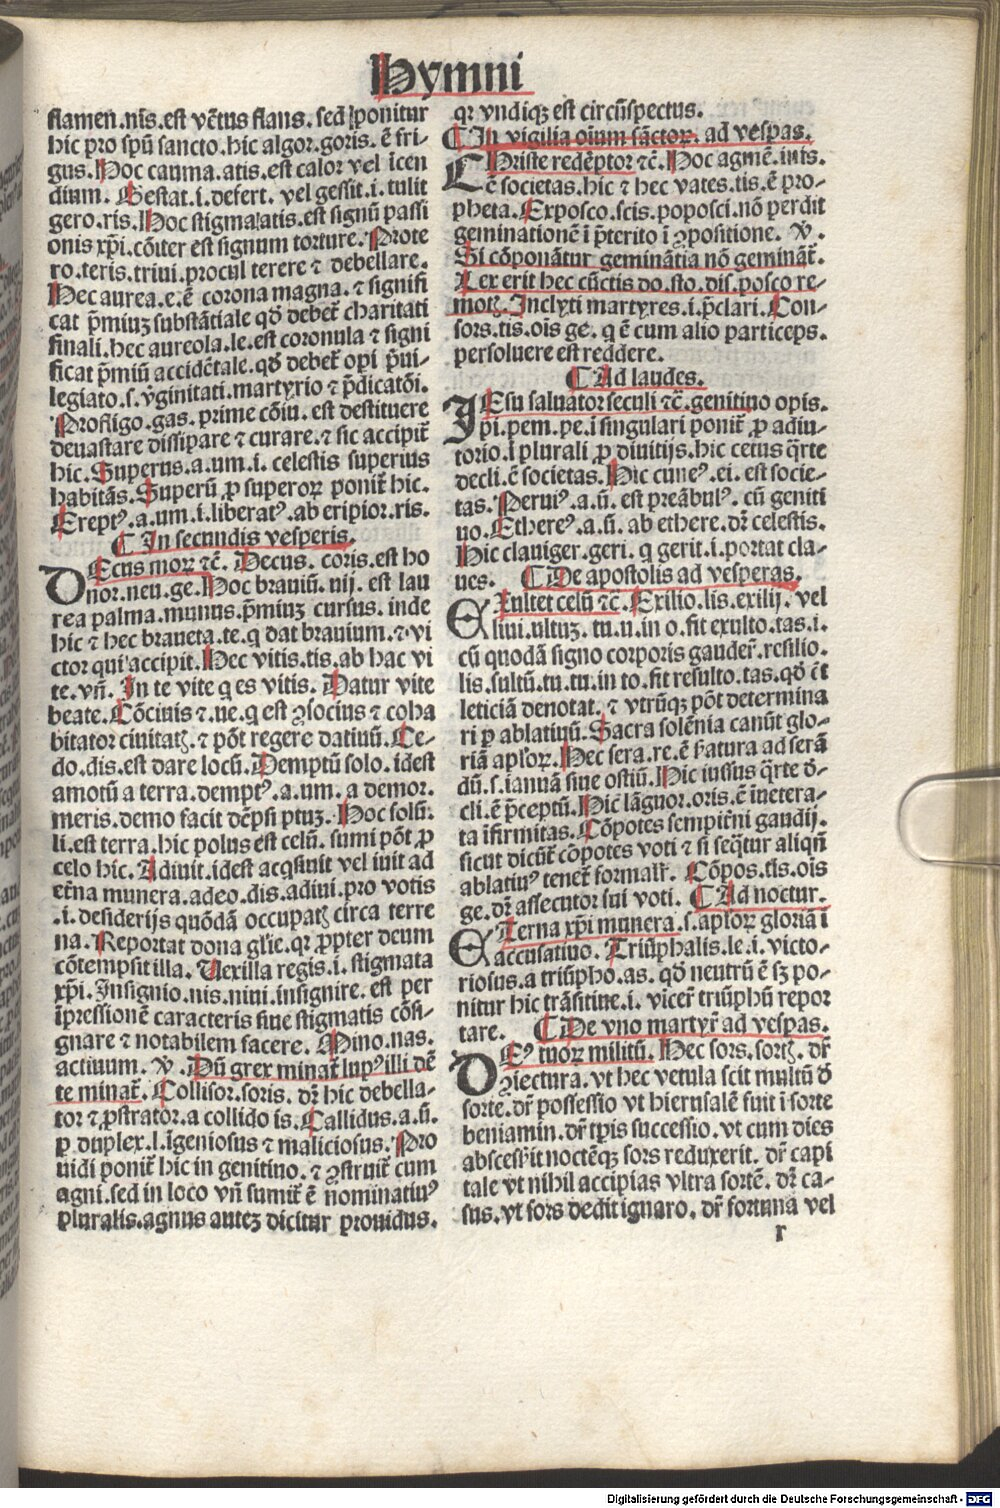 Hymni
flamen.nis.est vētus flans. sed ponitur
hic pro spū sancto.hic algor.goris. ē fri-
gus.Hoc cauma.atis.est calor vel īcen
dium. Gestat.i.defert. vel gessit.i.tulit
gero.ris.Hoc stigma.atis.est signū passi
onis xp̄i.cōiter est signum torture.Prote
ro.teris.triui.procul terere ⁊ debellare.
Hec aurea.e.ē corona magna.⁊ signifi
cat p̄miuꝫ substātiale qḋ debet̄ charitati
finali.hec aureola.le.est coronula ⁊ signi
ficat p̄miū accidētale.qḋ debet̄ opi p̄ui-
legiato.s.v̄ginitati.martyrio ⁊ p̄dicatōi.
Profligo.gas.prime cōiu.est destituere
deuastare dissipare ⁊ curare.⁊ sic accipit̄
hic.Superus.a.um.i. celestis superius
habitās.Superū ꝓ superoꝝ ponit̄ hic.
Erept⁹.a.um.i.liberat⁹.ab eripior.ris.
¶ In secundis vesperis.
DEcus moꝝ ⁊c. Decus. coris.est ho
nor.neu.ge.Hoc brauiū.uij. est lau
rea palma.munus.p̄miuꝫ cursus. inde
hic ⁊ hec braueta.te.q dat brauium.⁊ vi
ctor qui accipit.Hec vitis.tis.ab hac vi
te.vn̄. In te vite q es vitis. Datur vite
beate. Cōciuis ⁊.ue.q est ꝯsocius ⁊ coha
bitator ciuitatꝭ.⁊ pōt regere datiuū.Ce-
do.dis.est dare locū.Demptū solo.idest
amotū a terra.dempt⁹.a.um.a demor.
meris.demo facit dēpsi ptuꝫ. Hoc solū.
li.est terra.hic polus est celū. sumi pōt ꝓ
celo hic. Adiuit.idest acqsiuit vel iuit ad
etn̄a munera.adeo.dis.adiui.pro votis
.i.desiderijs quōdā occupatꝭ circa terre
na. Reportat dona gl̄ie.qꝛ ꝓpter deum
cōtempsit illa. Uexilla regis.i. stigmata
xp̄i.Insignio.nis.niui.insignire.est per
īpressionē caracteris siue stigmatis cōsi-
gnare ⁊ notabilem facere. Mino.nas.
actiuum. ꝟ. Dū grex minat̄ lup⁹ illi dē
te minat̄. Collisor.soris. dꝛ̄ hic debella-
tor ⁊ ꝓstrator.a collido is. Callidus.a.ū.
ꝓ duplex.l.īgeniosus ⁊ maliciosus. Pro
uidi ponit̄ hic in genitiuo.⁊ ꝯstruit̄ cum
agni.sed in loco vn̄ sumit̄ ē nominatiu⁹
pluralis.agnus auteꝫ dicitur prouidus.
qꝛ vndiqꝫ est circūspectus.
¶ In vigilia oīum sāctoꝝ. ad vespas.
CHriste redēptor ⁊c. Hoc agmē.inis.
ē societas.hic ⁊ hec vates.tis.ē pro-
pheta.Exposco.scis.poposci.nō perdit
geminationē ī p̄terito ī ꝯpositione. ꝟ.
Si cōponātur geminātia nō gemināt̄.
Lex erit hec cūctis do.sto.dis.posco re-
motꝭ.Inclyti martyres.i.p̄clari. Con-
sors.tis.oīs ge. q ē cum alio particeps.
persoluere est reddere.
¶ Ad laudes.
IEsu saluator seculi ⁊c.genitiuo opis.
pi.pem.pe.i singulari ponit̄ ꝓ adiu-
torio.i plurali ꝓ diuitijs.hic cetus q̄rte
decli.ē societas.Hic cune⁹.ei.est socie-
tas. Perui⁹.a.ū. est preābul⁹. cū geniti
uo. Ethere⁹.a.ū. ab ethere.dꝛ̄ celestis.
Hic clauiger.geri. q gerit.i.portat cla-
ues. ¶ De apostolis ad vesperas.
EXultet celū ⁊c. Exilio.lis.exilij. vel
liui.ultuꝫ. tu.u.in o.fit exulto.tas.i.
cū quodā signo corporis gauder̄.resilio.
lis.sultū.tu.tu.in to.fit resulto.tas.qḋ ēt
leticiā denotat. ⁊ vtrūqꝫ pōt determina
ri ꝑ ablatiuū. Sacra solēnia canūt glo-
riā apl̄oꝝ. Hec sera.re.ē ſtatura ad serā
dū.s.ianuā siue ostiū.Hic iussus q̄rte d̄-
cli.ē p̄ceptū. Hic lāguor.oris.ē inetera-
ta īfirmitas. Cōpotes sempitn̄i gaudij.
sicut dicūt̄ cōpotes voti ⁊ si seq̄tur aliqn̄
ablatiu⁹ tenet̄ formalr̄. Cōpos.tis.oīs
ge.dꝛ̄ assecutor sui voti. ¶ Ad noctur.
ETerna xp̄i munera.s.apl̄oꝝ gloriā ī
accusatiuo. Triūphalis.le.i. victo-
riosus.a triūpho.as. qḋ neutrū ē sꝫ po-
nitur hic trāsitiue.i. vicer̄ triūphū repor
tare. ¶ De vno martyr̄ ad vespas.
DE⁹ tuoꝝ militū. Hec sors.sortꝭ. dꝛ̄
ꝯiectura.vt hec vetula scit multū d̄
sorte.dꝛ̄ possessio vt hierusalē fuit ī sorte
beniamin.dꝛ̄ tp̄is successio.vt cum dies
abscesserit noctēqꝫ sors reduxerit. dꝛ̄ capi
tale vt nihil accipias vltra sortē. dꝛ̄ ca-
sus.vt sors dedit ignaro. dꝛ̄ fortuna vel
r
Digitalisierung gefördert durch die Deutsche Forschungsgemeinschaft - DFG